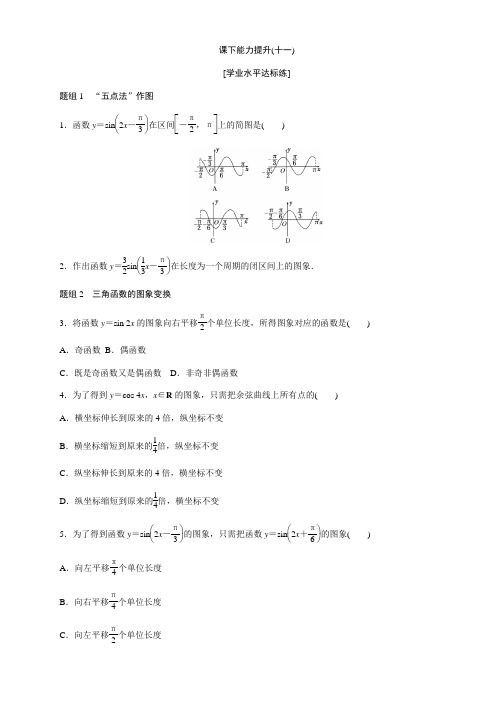 课下能力提升(十一)
[学业水平达标练]
题组1 “五点法”作图
1．函数 y＝sin(2x－π/3)在区间[－π/2，π]上的简图是( )
A B
C D
2．作出函数 y＝3/2sin(1/3x－π/3)在长度为一个周期的闭区间上的图象．
题组2 三角函数的图象变换
3．将函数 y＝sin 2x 的图象向右平移π/2个单位长度，所得图象对应的函数是( )
A．奇函数 B．偶函数
C．既是奇函数又是偶函数 D．非奇非偶函数
4．为了得到 y＝cos 4x，x∈R 的图象，只需把余弦曲线上所有点的( )
A．横坐标伸长到原来的 4 倍，纵坐标不变
B．横坐标缩短到原来的1/4倍，纵坐标不变
C．纵坐标伸长到原来的 4 倍，横坐标不变
D．纵坐标缩短到原来的1/4倍，横坐标不变
5．为了得到函数 y＝sin(2x－π/3)的图象，只需把函数 y＝sin(2x＋π/6)的图象( )
A．向左平移π/4个单位长度
B．向右平移π/4个单位长度
C．向左平移π/2个单位长度